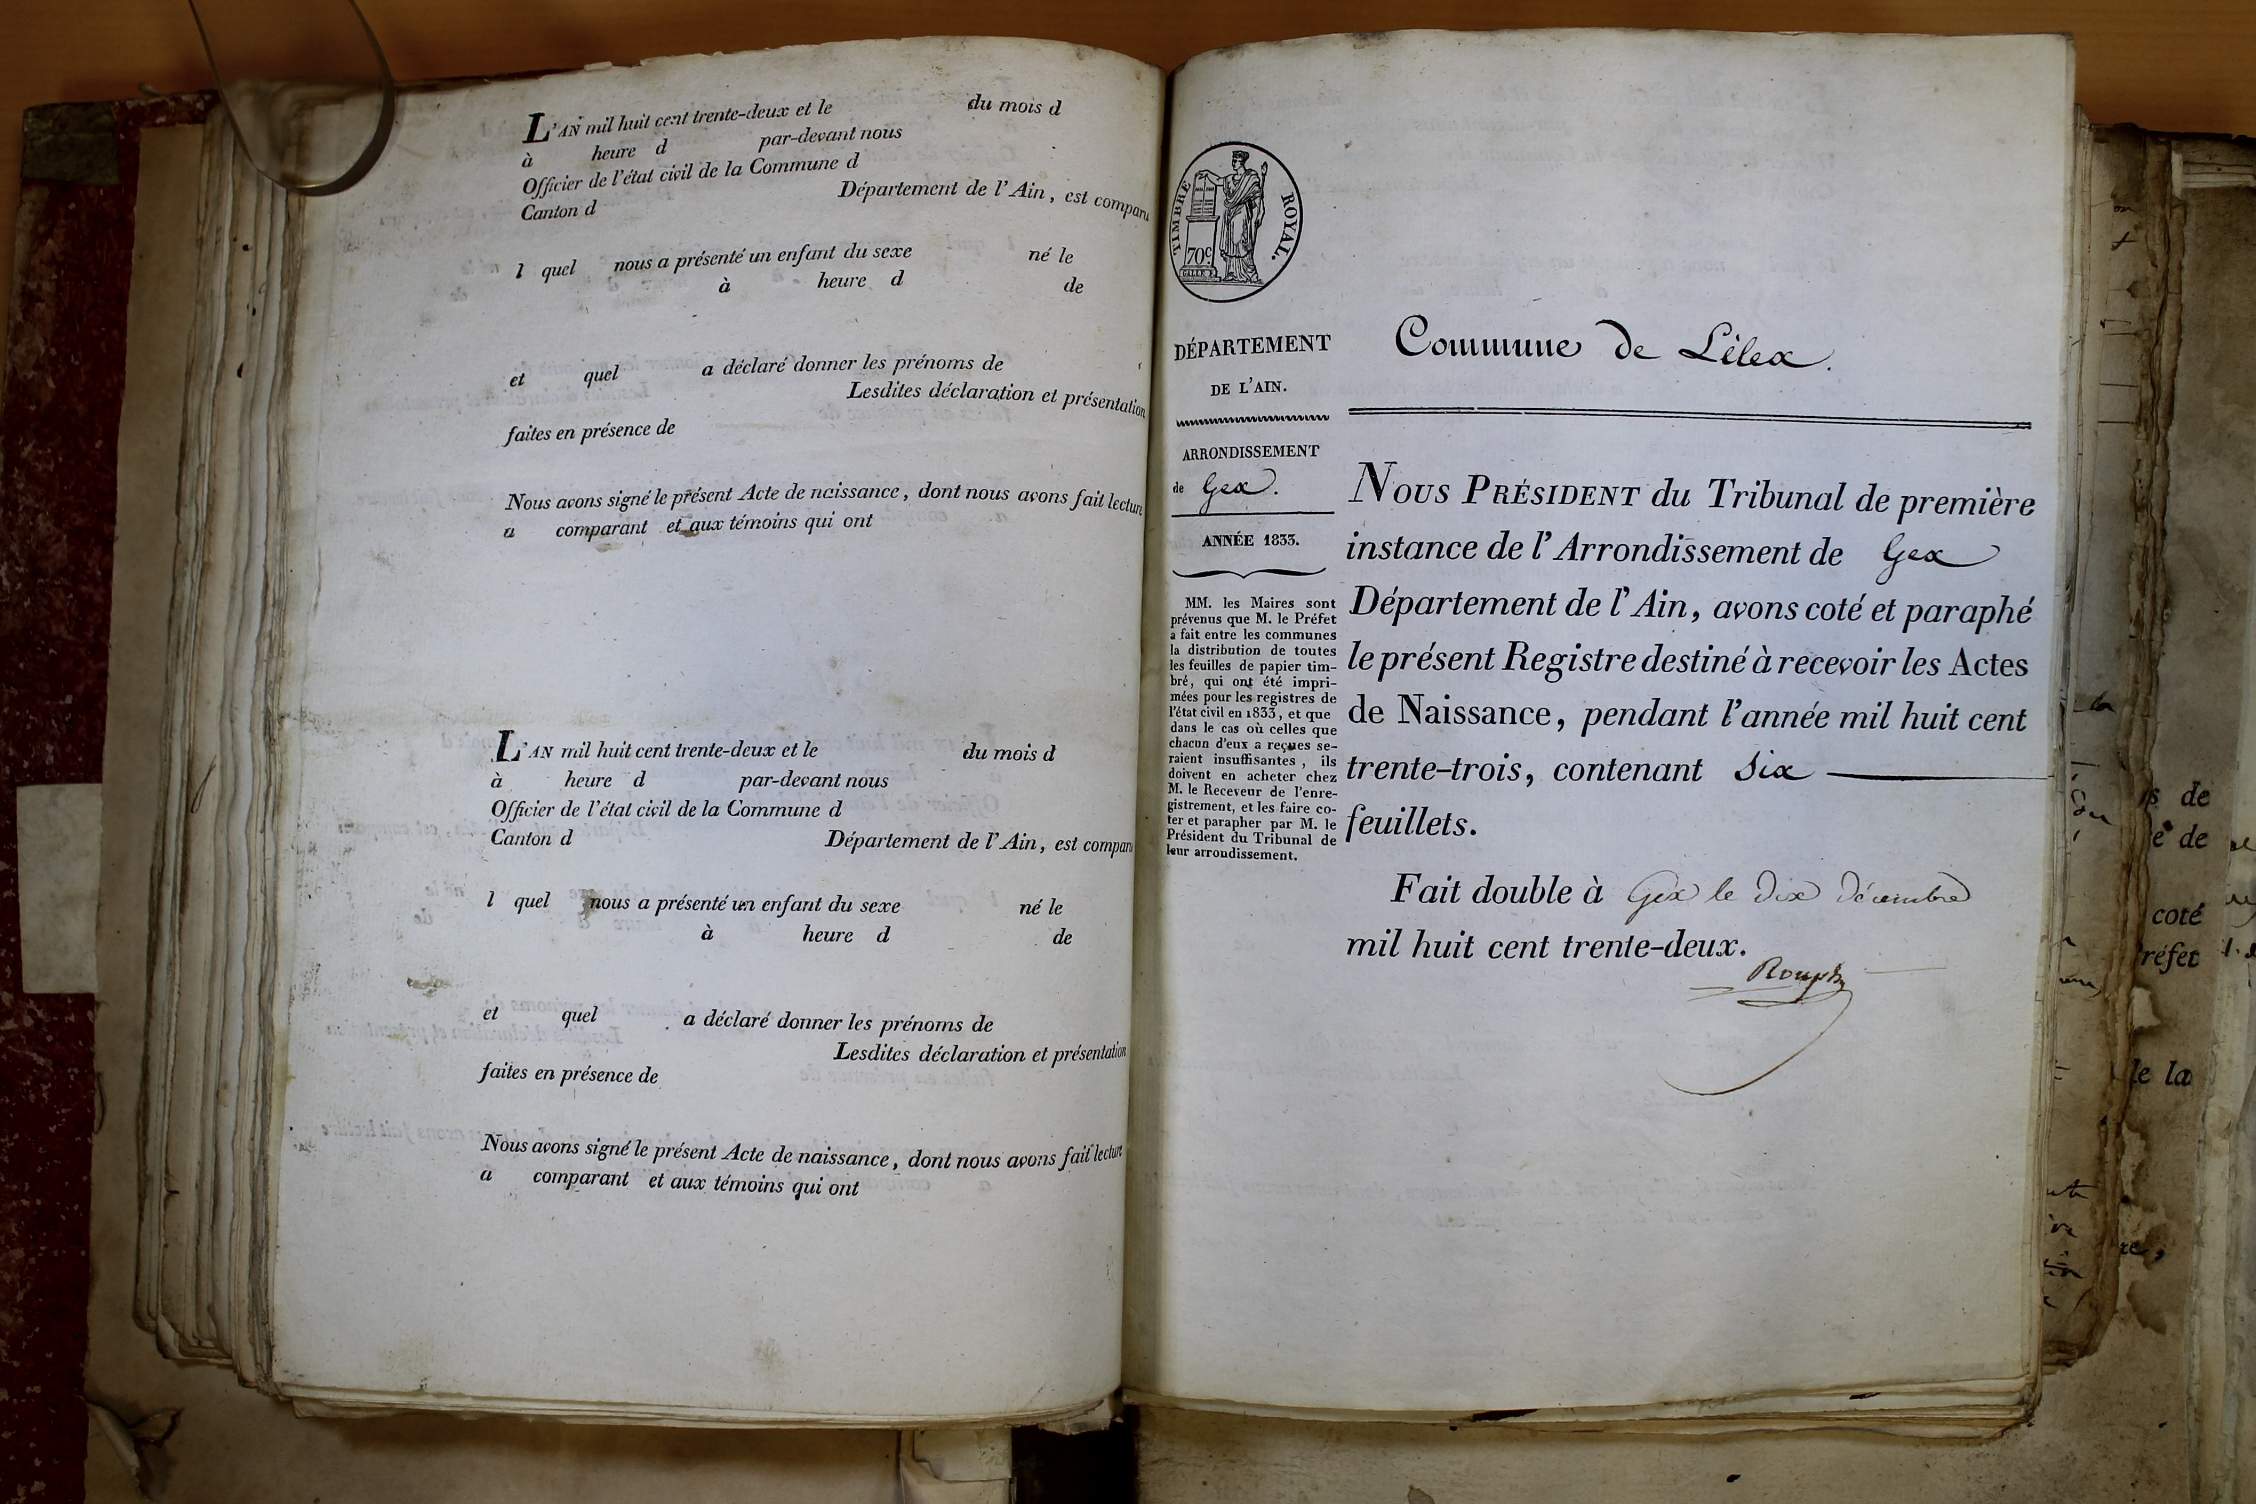 L'AN mil huit cent trente-deux et le du mois d
à heure d par-devant nous
Officier de l'état civil de la Commune d
Canton d Département de l'Ain, est comparu
l quel nous a présenté un enfant du sexe né le
à heure d de
et quel a déclaré donner les prénoms de
Lesdites déclaration et présentation
faites en présence de
Nous avons signé le présent Acte de naissance, dont nous avons fait lecture
a comparant et aux témoins qui ont
L'AN mil huit cent trente-deux et le du mois d
à heure d par-devant nous
Officier de l'état civil de la Commune d
Canton d Département de l'Ain, est comparu
l quel nous a présenté un enfant du sexe né le
à heure d de
et quel a déclaré donner les prénoms de
Lesdites déclaration et présentation
faites en présence de
Nous avons signé le présent Acte de naissance, dont nous avons fait lecture
a comparant et aux témoins qui ont
TIMBRE ROYAL.
70c.
DÉPARTEMENT
DE L'AIN.
ARRONDISSEMENT
de Gex.
ANNÉE 1833.
MM. les Maires sont
prévenus que M. le Préfet
a fait entre les communes
la distribution de toutes
les feuilles de papier tim-
bré, qui ont été impri-
mées pour les registres de
l'état civil en 1833, et que
dans le cas où celles que
chacun d'eux a reçues se-
raient insuffisantes, ils
doivent en acheter chez
M. le Receveur de l'enre-
gistrement, et les faire co-
ter et parapher par M. le
Président du Tribunal de
leur arrondissement.
Commune de Lélex.
NOUS PRÉSIDENT du Tribunal de première
instance de l'Arrondissement de Gex
Département de l'Ain, avons coté et paraphé
le présent Registre destiné à recevoir les Actes
de Naissance, pendant l'année mil huit cent
trente-trois, contenant six
feuillets.
Fait double à Gex le dix décembre
mil huit cent trente-deux.
de
de
coté
réfet
le la